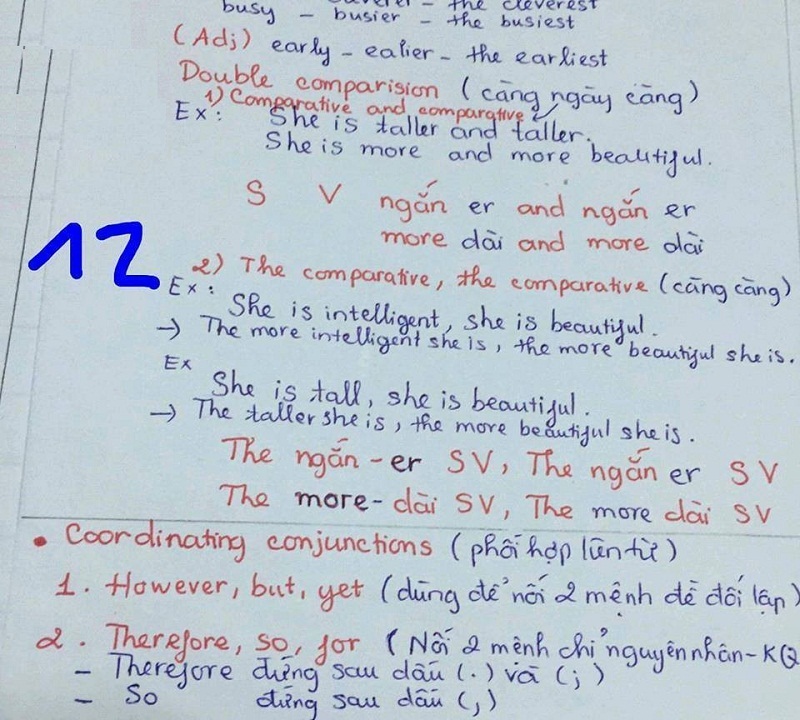 the cleverest
busy – busier – the busiest
(Adj) early – ealier – the earliest
Double comparision (càng ngày càng)
1) Comparative and comparative
Ex: She is taller and taller.
She is more and more beautiful.
S V ngắn er and ngắn er
more dài and more dài
12
2) The comparative, the comparative (càng càng)
Ex: She is intelligent, she is beautiful.
→ The more intelligent she is, the more beautiful she is.
Ex She is tall, she is beautiful.
→ The taller she is, the more beautiful she is.
The ngắn – er SV, The ngắn er SV
The more – dài SV, The more dài SV
• Coordinating conjunctions (phối hợp liên từ)
1. However, but, yet (dùng để nối 2 mệnh đề đối lập)
2. Therefore, so, for (Nối 2 mệnh chỉ nguyên nhân – KQ
– Therefore đứng sau dấu (.) và (;)
– So đứng sau dấu (,)